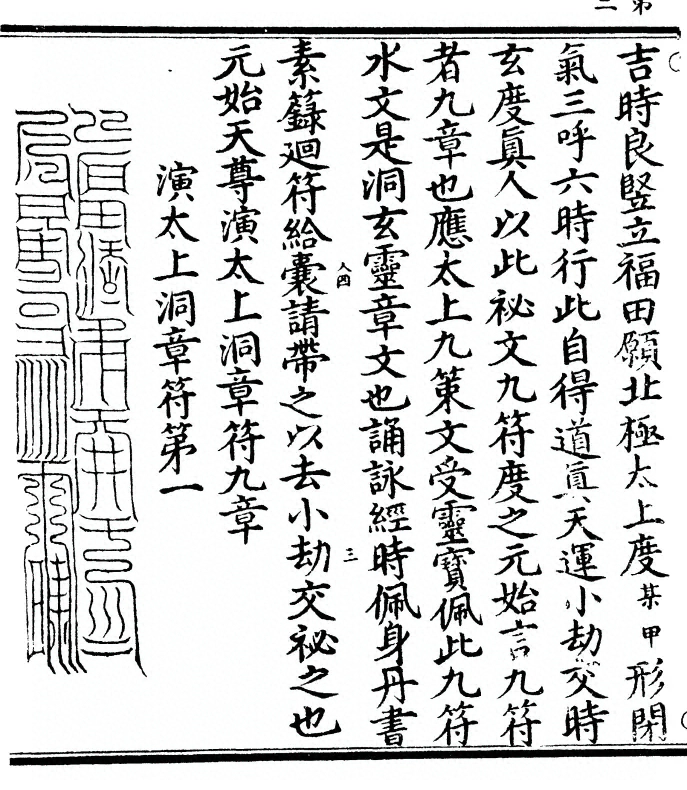 吉時良竪立福田願北極太上度某甲形閉
氣三呼六時行此自得道眞天運小劫交時
玄度眞人以此祕文九符度之元始言九符
者九章也應太上九策文受靈寶佩此九符
水文是洞玄靈章文也誦詠經時佩身丹書
素籙廻符給囊請帶之以去小劫交祕之也
元始天尊演太上洞章符九章
演太上洞章符第一